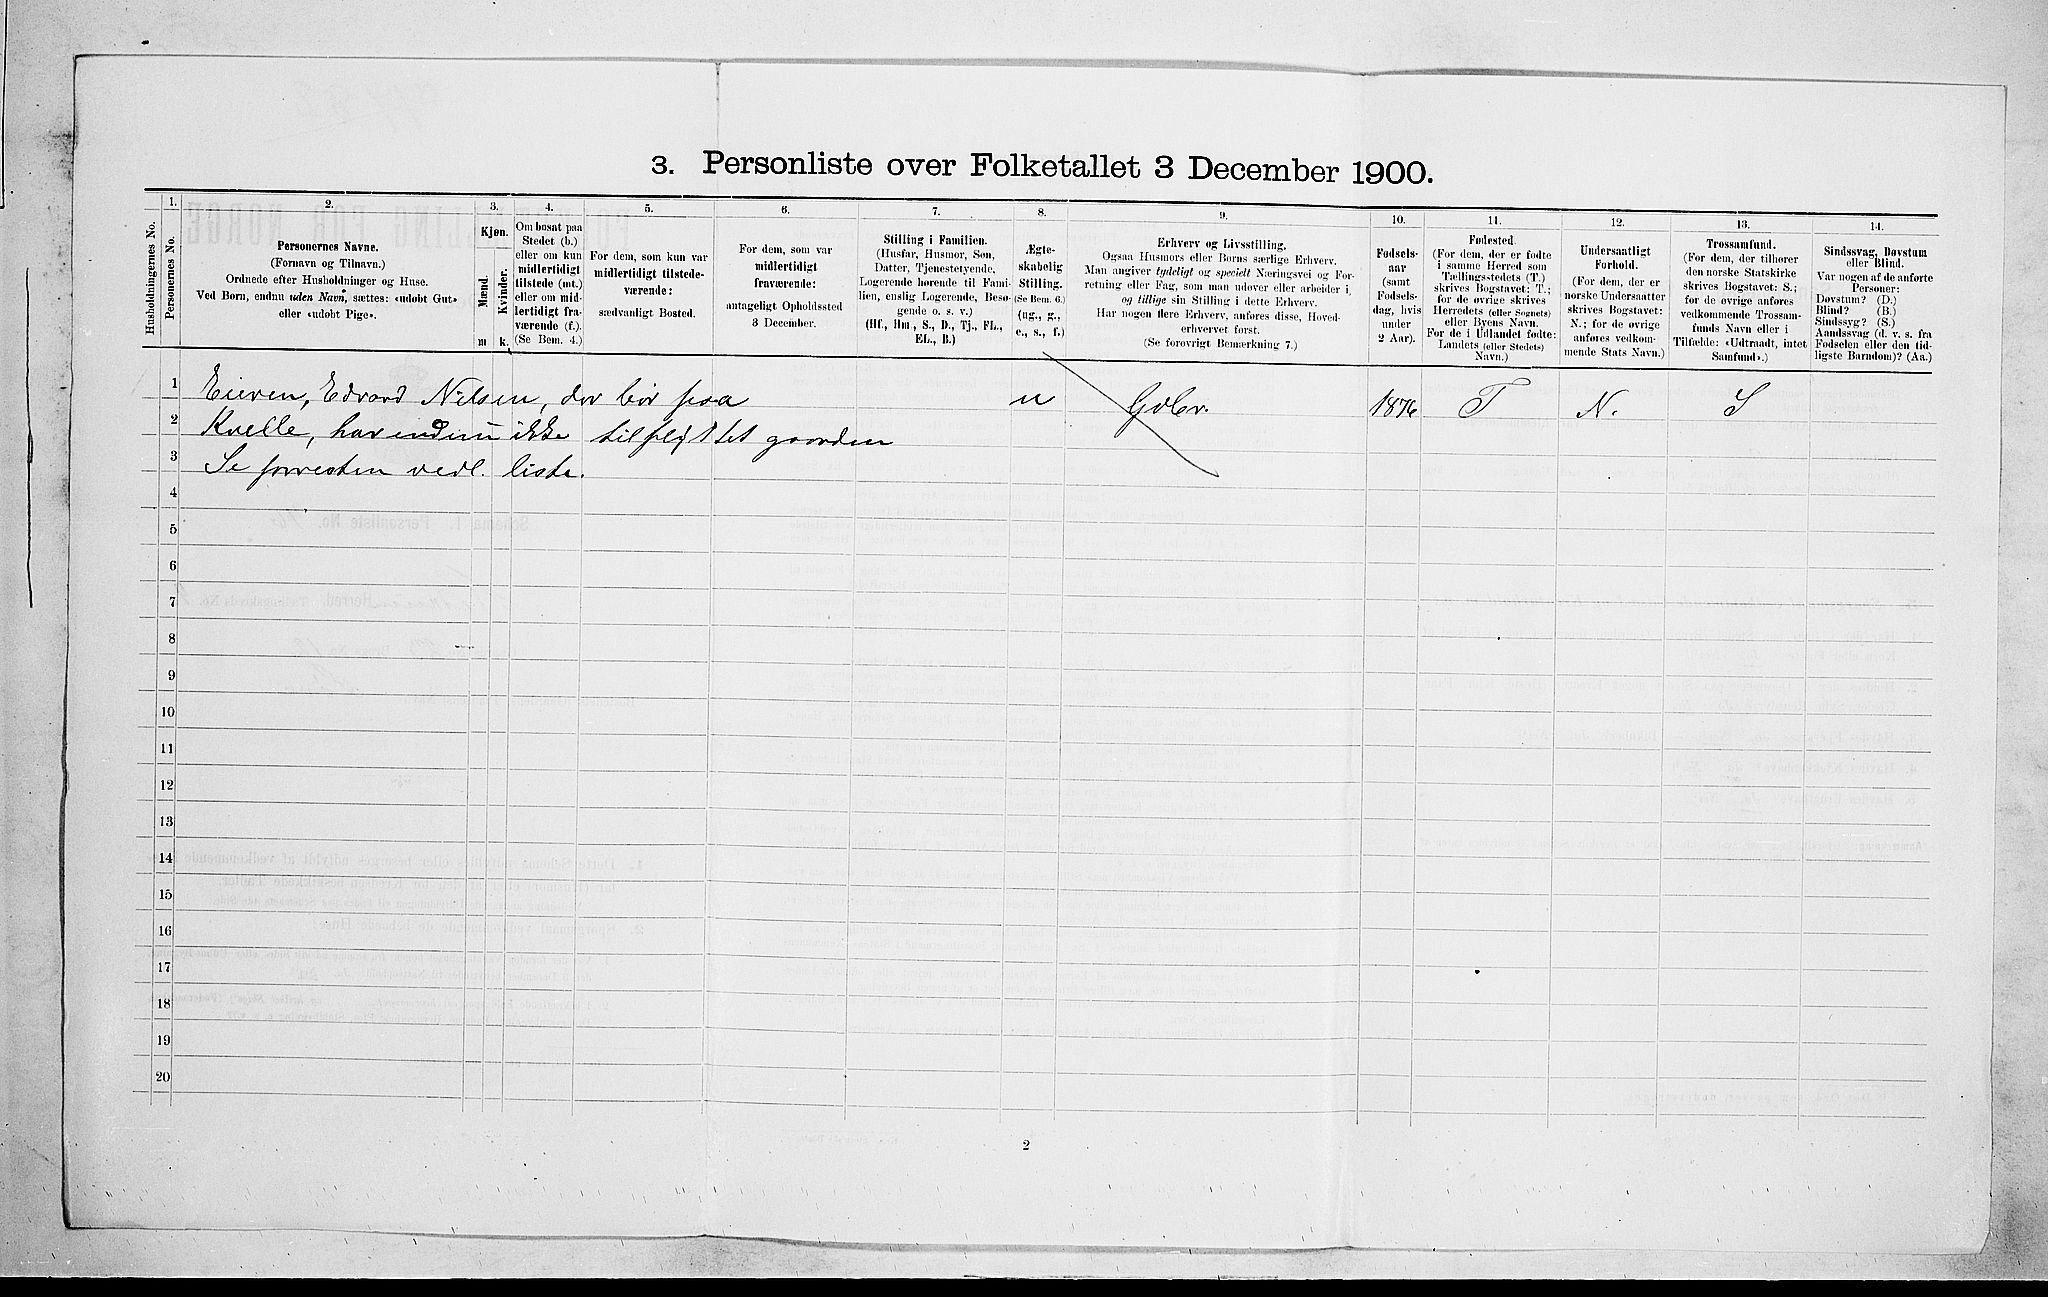 3. Personliste over Folketallet 3 December 1900.
1. 2. 3. 4. 5. 6. 7. 8. 9. 10. 11. 12. 13. 14.
Husholdningernes No.
Personernes No.
Personernes Navne.
(Fornavn og Tilnavn.)
Ordnede efter Husholdninger og Huse.
Ved Børn, endnu uden Navn, sættes: «udøbt Gut»
eller «udøbt Pige».
Kjøn.
Mænd.
Kvinder.
m k.
Om bosat paa
Stedet (b.)
eller om kun
midlertidigt
tilstede (mt.)
eller om mid-
lertidigt fra-
værende (f.)
(Se Bem. 4.)
For dem, som kun var
midlertidigt tilstede-
værende:
sædvanligt Bosted.
For dem, som var
midlertidigt
fraværende:
antageligt Opholdssted
3 December.
Stilling i Familien.
(Husfar, Husmor, Søn,
Datter, Tjenestetyende,
Logerende hørende til Fami-
lien, enslig Logerende, Besø-
gende o. s. v.)
(Hf., Hm., S., D., Tj., FL.,
EL., B.)
Ægte-
skabelig
Stilling.
(Se Bem. 6.)
(ug., g.,
e., s., f.)
Erhverv og Livsstilling.
Ogsaa Husmors eller Børns særlige Erhverv.
Man angiver tydeligt og specielt Næringsvei og For-
retning eller Fag, som man udøver eller arbeider i,
og tillige sin Stilling i dette Erhverv.
Har nogen flere Erhverv, anføres disse, Hoved-
erhvervet først.
(Se forøvrigt Bemærkning 7.)
Fødsels-
aar
(samt
Fødsels-
dag, hvis
under
2 Aar).
Fødested.
(For dem, der er fødte
i samme Herred som
Tællingsstedets (T.)
skrives Bogstavet: T.;
for de øvrige skrives
Herredets (eller Sognets)
eller Byens Navn.
For de i Udlandet fødte:
Landets (eller Stedets)
Navn.)
Undersaatligt
Forhold.
(For dem, der er
norske Undersaatter
skrives Bogstavet:
N.; for de øvrige
anføres vedkom-
mende Stats Navn.)
Trossamfund.
(For dem, der tilhører
den norske Statskirke
skrives Bogstavet: S.;
for de øvrige anføres
vedkommende Trossam-
funds Navn eller i
Tilfælde: «Udtraadt, intet
Samfund».)
Sindssvag, Døvstum
eller Blind.
Var nogen af de anførte
Personer:
Døvstum? (D.)
Blind? (B.)
Sindssyg? (S.)
Aandssvag (d. v. s. fra
Fødselen eller den tid-
ligste Barndom)? (Aa.)
1 Eieren, Edvard Nilsen, der bor paa u Gdbr. 1876 T N. S
2 Kvelle, har endnu ikke tilflyttet gaarden
3 Se forresten vedl. liste.
4
5
6
7
8
9
10
11
12
13
14
15
16
17
18
19
20
2